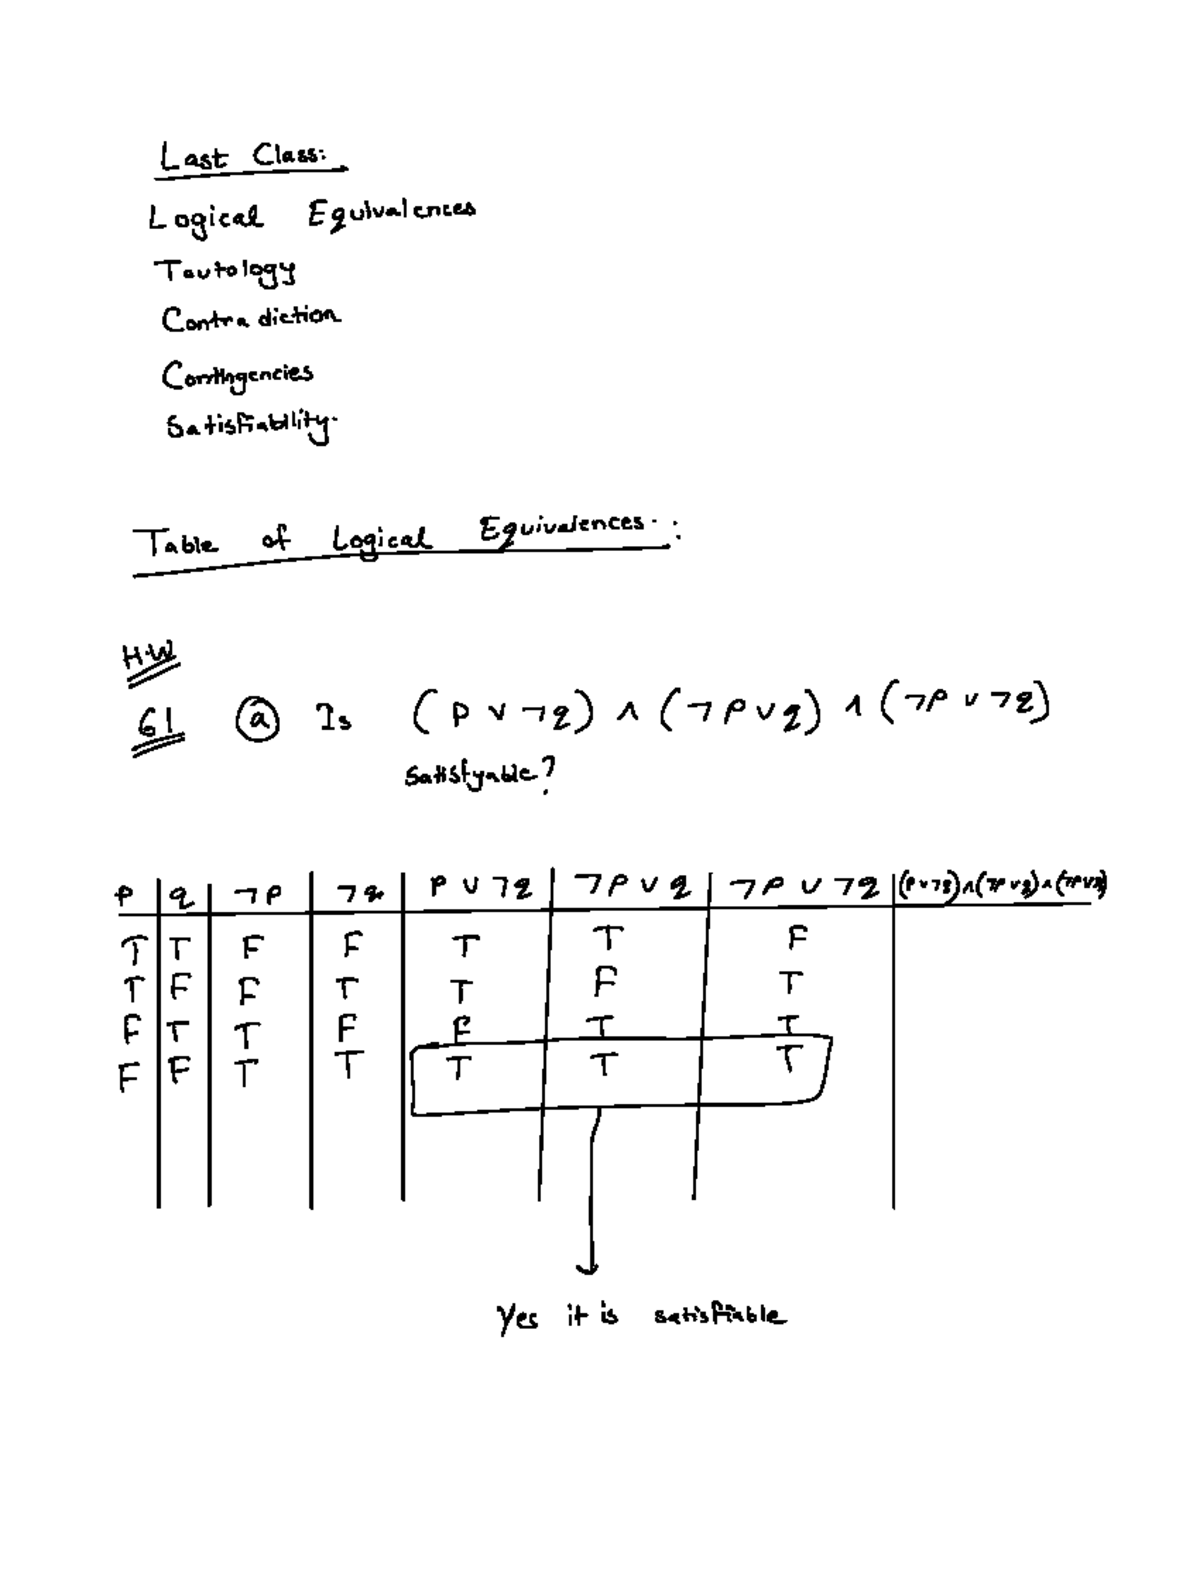 Last Class:
Logical Equivalences
Tautology
Contradiction
Contingencies
Satisfiability.
Table of Logical Equivalences :
H.W
61 (a) Is (p ∨ ¬q) ∧ (¬p ∨ q) ∧ (¬p ∨ ¬q)
satisfyable?
p q ¬p ¬q p ∨ ¬q ¬p ∨ q ¬p ∨ ¬q (p∨¬q)∧(¬p∨q)∧(¬p∨q)
T T F F T T F
T F F T T F T
F T T F F T T
F F T T T T T
Yes it is satisfiable